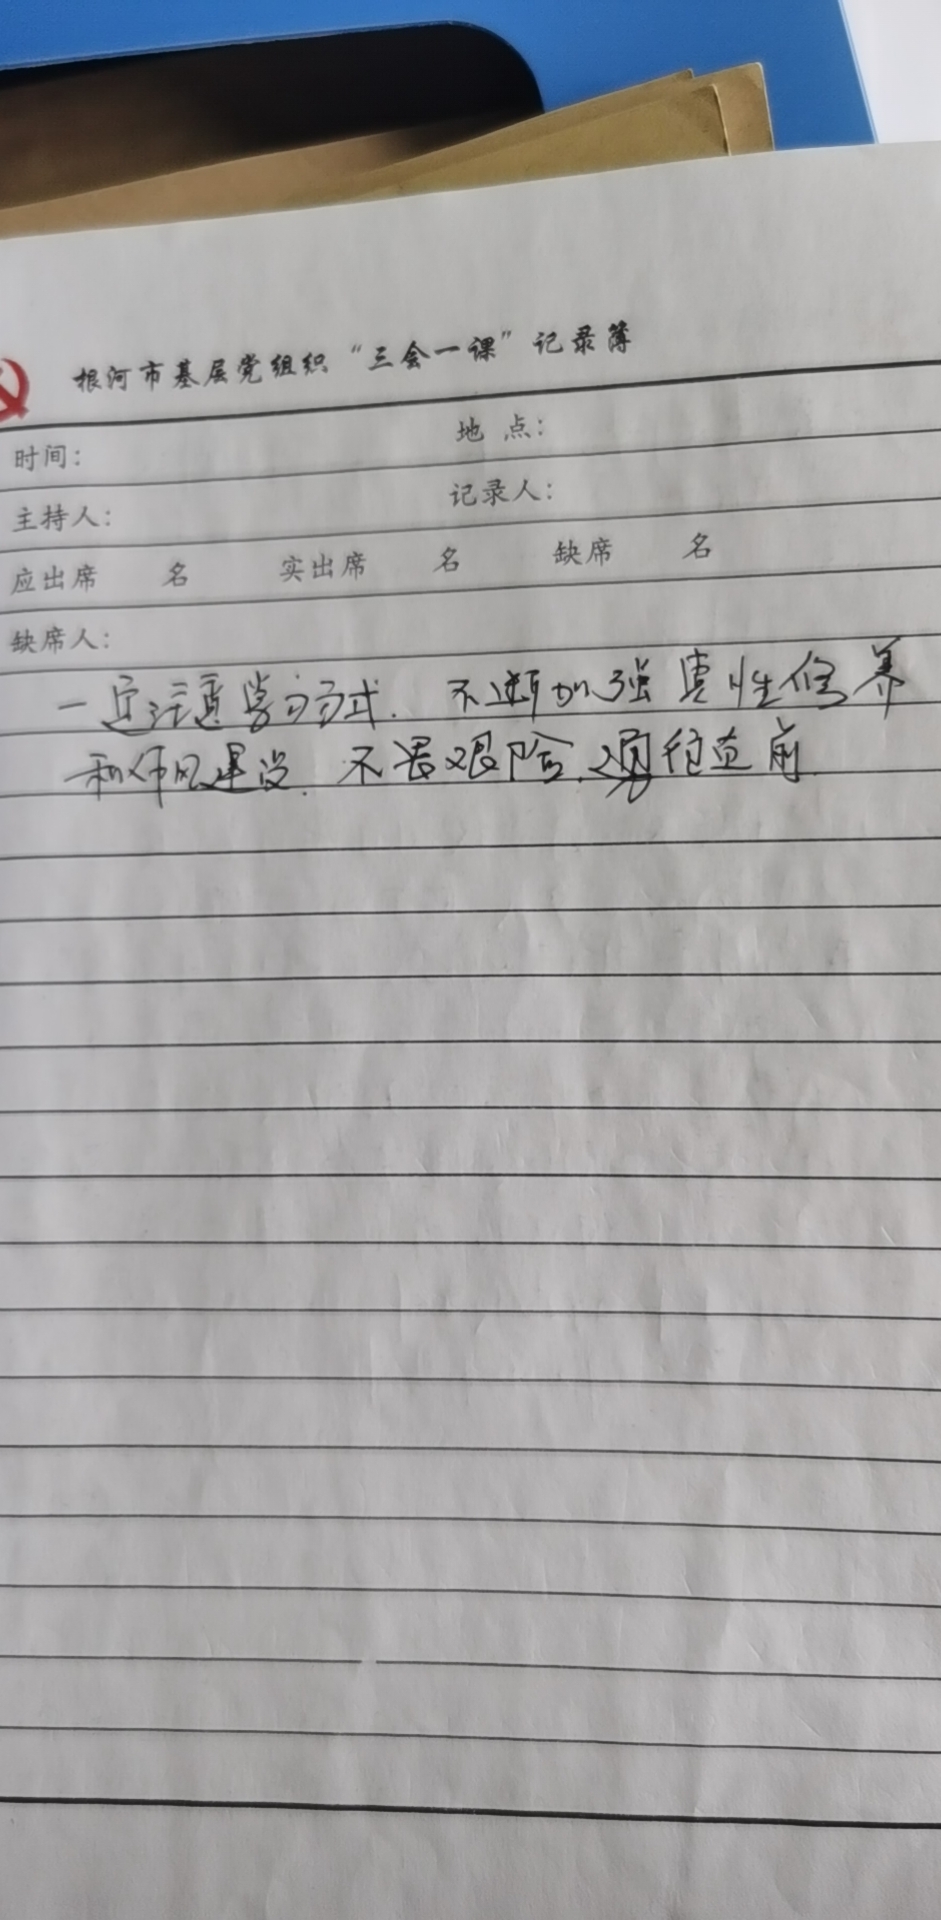 根河市基层党组织“三会一课”记录簿
时间： 地点：
主持人： 记录人：
应出席 名 实出席 名 缺席 名
缺席人：
一定注意学习方式．不断加强党性修养
和作风建设．不畏艰险．勇往直前